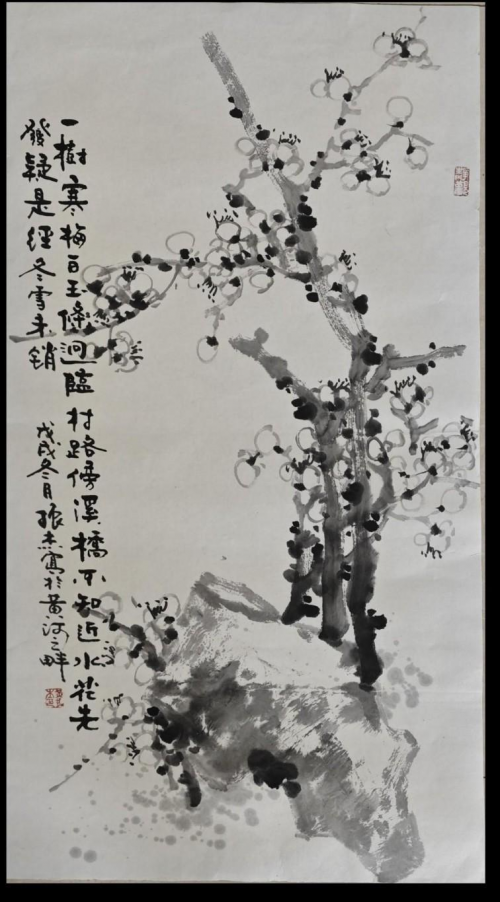 一樹寒梅白玉條迥臨村路傍溪橋不知近水花先
發疑是經冬雪未銷
戊戌冬月張杰寫於黃河之畔